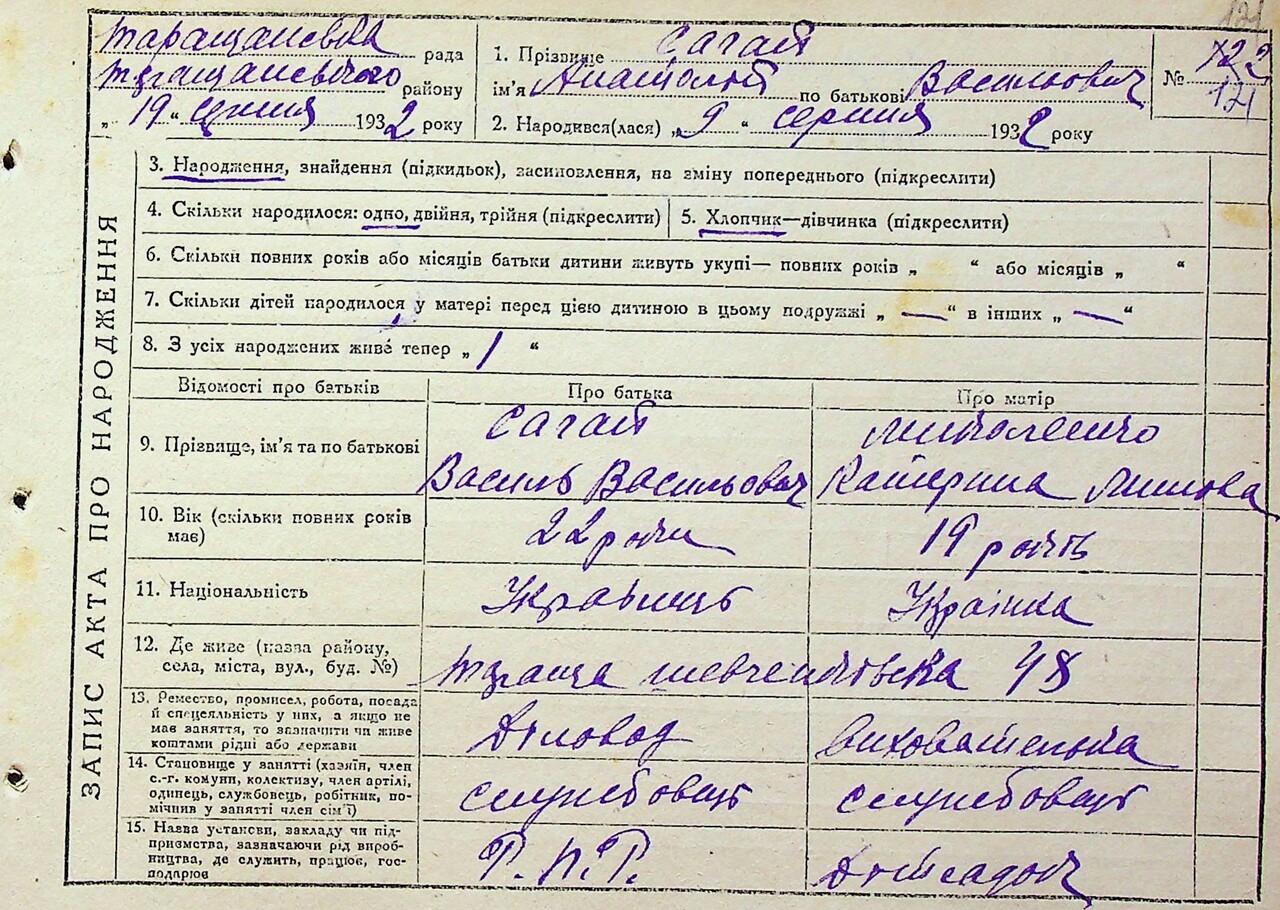 121
Таращанська рада
Таращанського району
„ 19 “ серпня 1932 року
1. Прізвище Сагай
ім’я Анатолій по батькові Васильович
2. Народився(лася) „ 9 “ серпня 1932 року
№ 122
121
ЗАПИС АКТА ПРО НАРОДЖЕННЯ
3. Народження, знайдення (підкидьок), засиновлення, на зміну попереднього (підкреслити)
4. Скільки народилося: одно, двійня, трійня (підкреслити)
5. Хлопчик—дівчинка (підкреслити)
6. Скільки повних років або місяців батьки дитини живуть укупі— повних років „ “ або місяців „ “
7. Скільки дітей народилося у матері перед цією дитиною в цьому подружжі „ — “ в інших „ — “
8. З усіх народжених живе тепер „ 1 “
Відомості про батьків
Про батька
Про матір
9. Прізвище, ім’я та по батькові
Сагай
Василь Васильович
Катерина
10. Вік (скільки повних років
має)
22 роки
19 років
11. Національність
Українець
Українка
12. Де живе (назва району,
села, міста, вул., буд. №)
Тараща Шевченківська 48
13. Ремество, промисел, робота, посада
й спецеяльність у них, а якщо не
має заняття, то зазначити чи живе
коштами рідні або держави
Діловод
Вихователька
14. Становище у занятті (хазяїн, член
с.-г. комуни, колективу, член артілі,
одинець, службовець, робітник, по-
мічник у занятті член сім’ї)
службовець
службовець
15. Назва установи, закладу чи під-
приємства, зазначаючи рід вироб-
ництва, де служить, працює, гос-
подарює
Р.П.Р.
Дитсадок